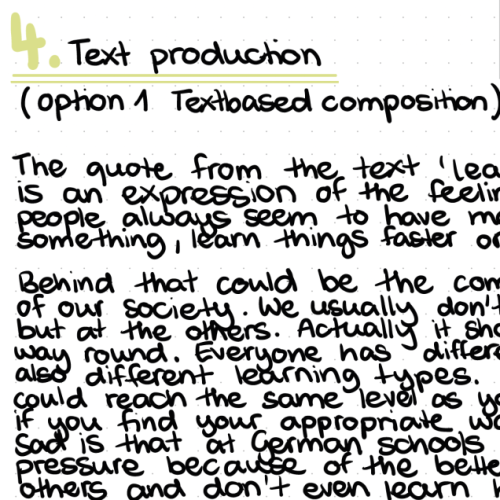 4. Text production
(option 1 Textbased composition)
The quote from the text 'lea
is an expression of the feelin
people always seem to have m
something, learn things faster or
Behind that could be the com
of our society. We usually don't
but at the others. Actually it sho
way round. Everyone has differe
also different learning types.
could reach the same level as yo
if you find your appropriate wa
Sad is that at German schools
pressure because of the bette
others and don't even learn